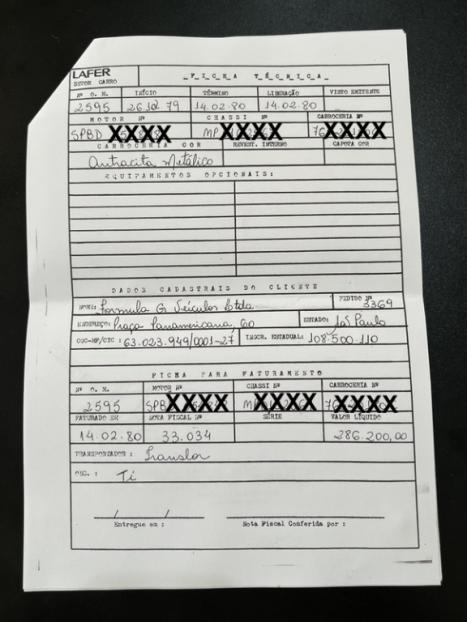 LAFER
SETOR CARRO
FICHA TÉCNICA
Nº O. M. INÍCIO TÉRMINO LIBERAÇÃO VISTO EMITENTE
2595 26.12.79 14.02.80 14.02.80
MOTOR Nº CHASSI Nº CARROCERIA Nº
SPBD XXXX MP XXXX 7 XXXX
CARROCERIA COR REVEST. INTERNO CAPOTA COR
Antracita Metálico
EQUIPAMENTOS OPCIONAIS:
DADOS CADASTRAIS DO CLIENTE
NOME: Formula G Veículos Ltda. PEDIDO Nº 3369
ENDEREÇO: Praça Panamericana, 60 ESTADO: São Paulo
CGC-MF/CIC: 63.023.949/0001-27 INSCR. ESTADUAL: 108.500.110
FICHA PARA FATURAMENTO
Nº O. M. MOTOR Nº CHASSI Nº CARROCERIA Nº
2595 SPB XXXX M XXXX 7 XXXX
FATURADO EM NOTA FISCAL Nº SÉRIE VALOR LÍQUIDO
14.02.80 33.034 286.200,00
TRANSPORTADOR: Translor
OBS.:
Entregue em: Nota Fiscal Conferida por: